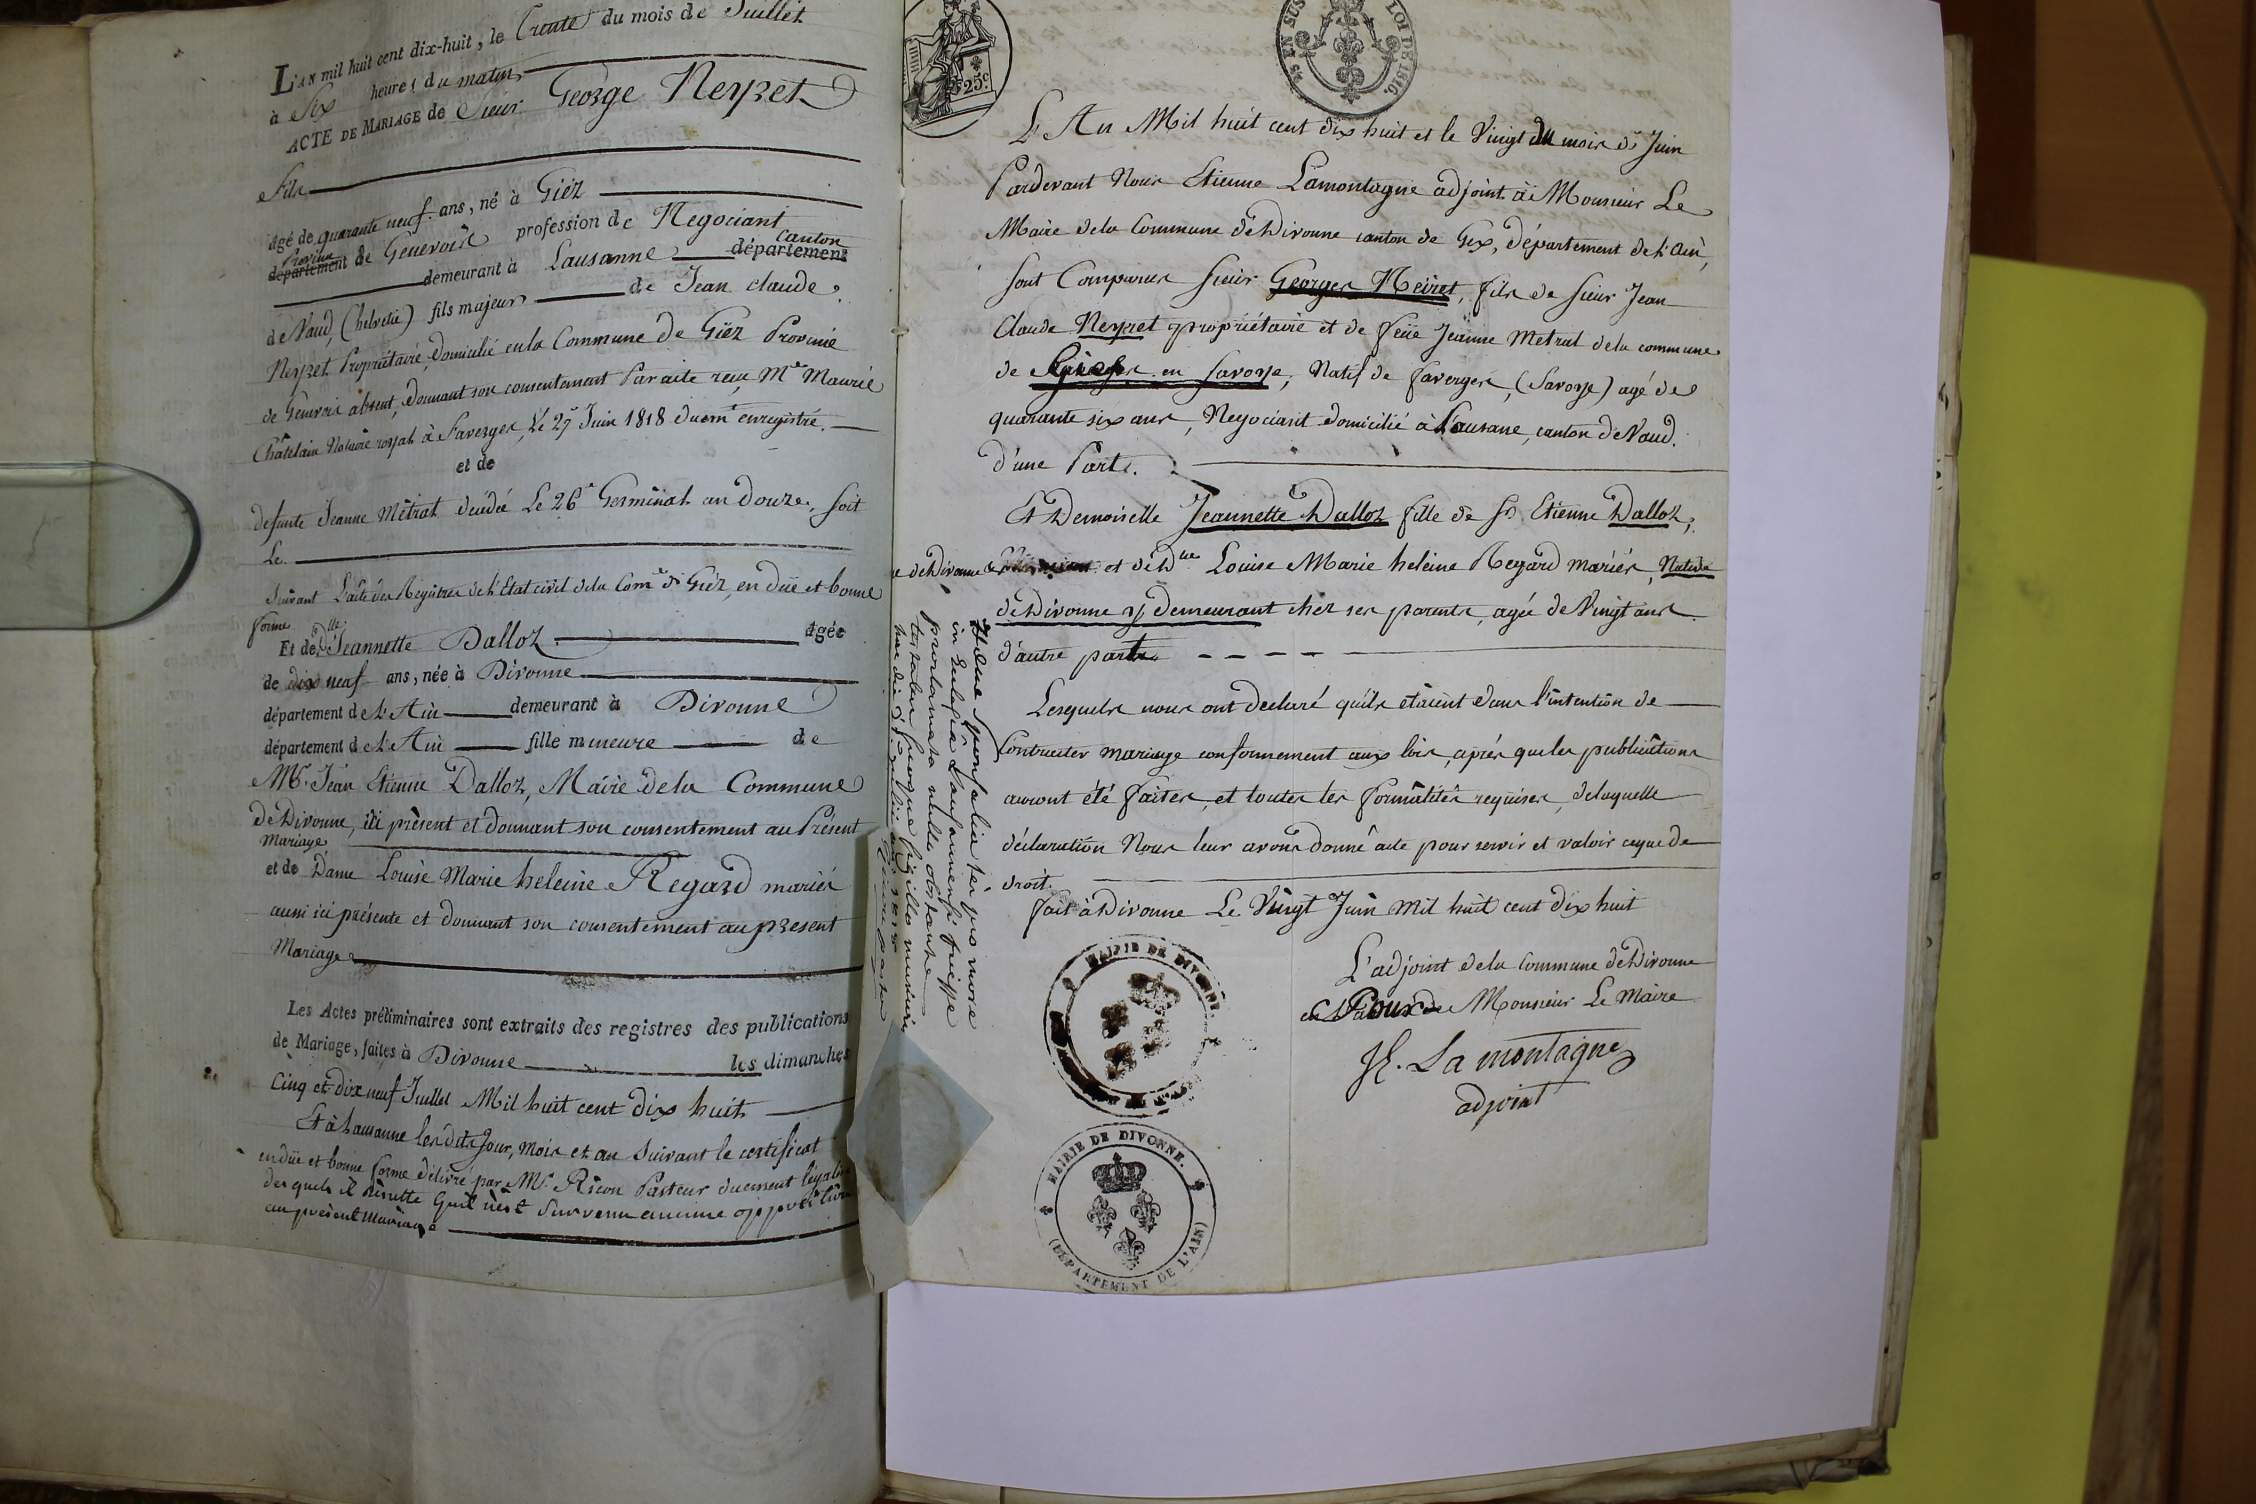 L'AN mil huit cent dix-huit, le Trente du mois de Juillet
à Six heures du matin
ACTE DE MARIAGE de Sieur George Neyret
Fils
agé de quarante neuf ans, né à Giéz
Province
département de Genevois profession de Negociant
canton
demeurant à Lausanne département
de Vaud, (helvetie) fils majeur de Jean Claude
Neyret Propriétaire, domicilié en la Commune de Giéz Province
de Genevois absent, donnant son consentement Par acte reçu Me Maurie
Châtelain Notaire royal à Faverges, Le 27 Juin 1818 duemt enregistré.
et de
defunte Jeanne Métrat décédée Le 26e Germinal an douze, soit
Le
Suivant L'acte des Registres de l'Etat civil de la Come de Giéz, en düe et bonne
forme
Et de Dlle Jeannette Dalloz agée
de dix neuf ans, née à Divonne
département de L'Ain demeurant à Divonne
département de L'Ain fille mineure de
Mr. Jean Etienne Dalloz, Maire de la Commune
de Divonne, ici présent et donnant son consentement au Présent
Mariage
et de Dame Louise Marie heleine Regard mariés
aussi ici présente et donnant son consentement au present
Mariage
Les Actes préliminaires sont extraits des registres des publications
de Mariage, faites à Divonne les dimanches
Cinq et Dix neuf Juillet Mil huit cent dix huit
Et à Lausanne les dits Jour, mois et an suivant le certificat
en düe et bonne forme délivré par Mr. Ricou Pasteur duement légalisé
desquels il Résulte Qu'il n'est Survenu aucune opposition
au présent Mariage
25c.
EN SUS
LOI DE 1816.
L'An Mil huit cent dix huit et le Vingt du mois de Juin
Pardevant Nous Etienne Lamontagne adjoint à Monsieur Le
Maire de la Commune de Divonne canton de Gex, Département de l'Ain,
sont Comparus sieur Georges Neiret, fils de sieur Jean
Claude Neyret propriétaire et de feüe Jeanne Metrat de la commune
de en Savoye, Natif de faverges, (Savoye) agé de
quarante six ans, Negociant domicilié à Lausane, canton de Vaud.
d'une Part.
Et Demoiselle Jeannette Dalloz fille de Sr Etienne Dalloz,
e de Divonne et de De Louise Marie heleine Regard mariés, Native
de Divonne y demeurant chez ses parents, agée de Vingt ans
d'autre part.
Lesquels nous ont declaré qu'ils étoient dans l'intention de
Contracter mariage conformement aux lois, après que les publications
auront été faites, et toutes les formalités requises, de laquelle
déclaration Nous leur avons donné acte pour servir et valoir ce que de
droit.
fait à Divonne Le Vingt Juin Mil huit cent dix huit
L'adjoint de la Commune de Divonne
Pour Monsieur Le Maire
JE. Lamontagne
adjoint
MAIRIE DE DIVONNE.
MAIRIE DE DIVONNE.
(DÉPARTEMENT DE L'AIN)
Hæcce Sponsalia ter pro more
in Ecclesia Lausannensi fuisse
proclamata nulla obstante
testatur